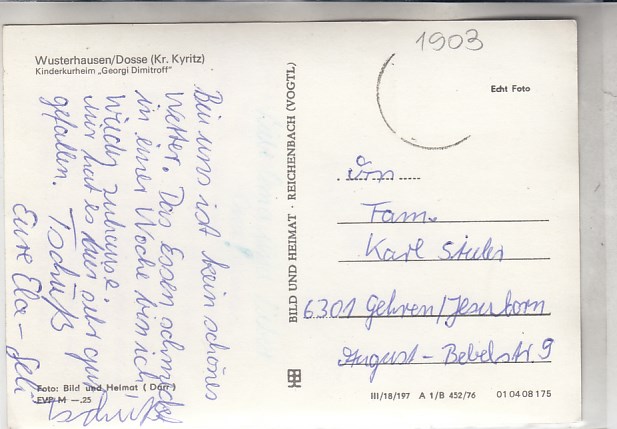 Wusterhausen/Dosse (Kr. Kyritz)
Kinderkurheim „Georgi Dimitroff"
Bei uns ist kein schönes
Wetter. Das Essen schmeckt
in einer Woche bin ich
wieder zuhause
mir hat es hier sehr gut
gefallen. Tschüß
Eure Ela -
Tschüß
Foto: Bild und Heimat ( Dörr )
EVP M —.25
BILD UND HEIMAT · REICHENBACH (VOGTL)
1903
Echt Foto
An
Fam.
Karl
6301 Gehren/Jesuborn
August - Bebelstr. 9
III/18/197 A 1/B 452/76 01 04 08 175